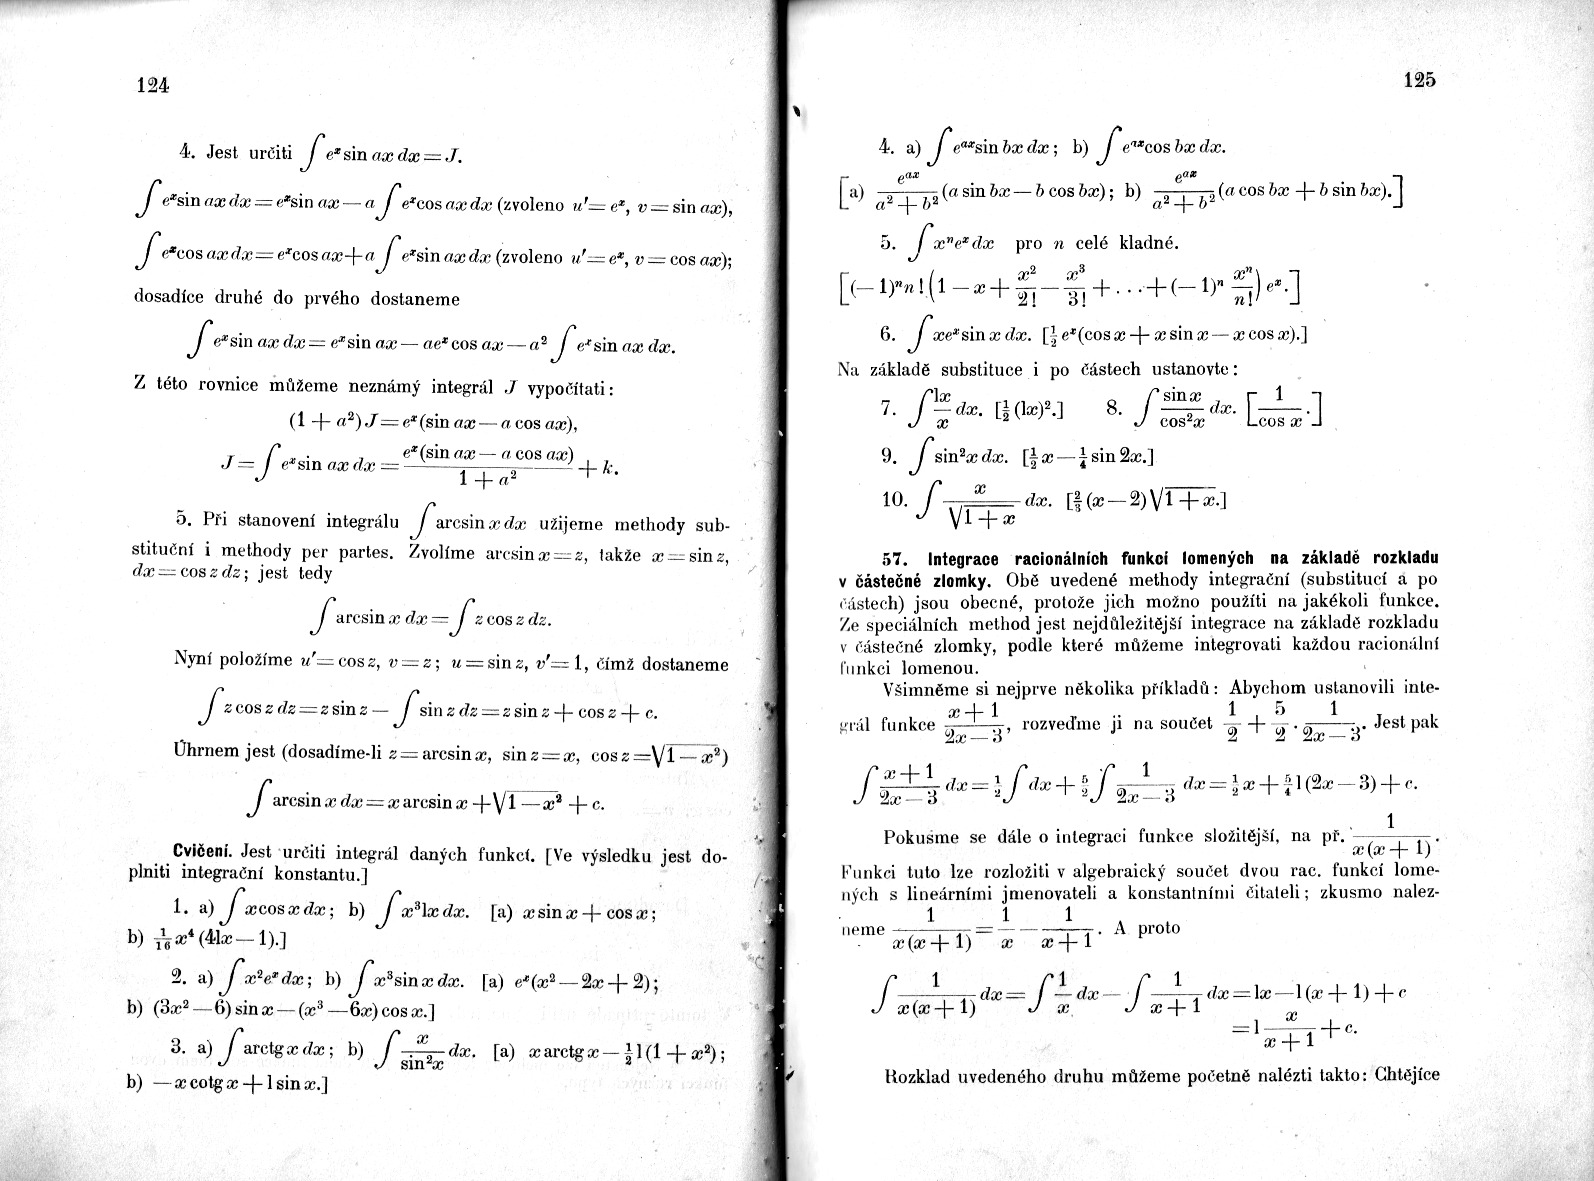 124
4. Jest určiti ∫ eˣ sin ax dx = J.
∫ eˣ sin ax dx = eˣ sin ax — a ∫ eˣ cos ax dx (zvoleno u′ = eˣ, v = sin ax),
∫ eˣ cos ax dx = eˣ cos ax + a ∫ eˣ sin ax dx (zvoleno u′ = eˣ, v = cos ax);
dosadíce druhé do prvého dostaneme
∫ eˣ sin ax dx = eˣ sin ax — aeˣ cos ax — a² ∫ eˣ sin ax dx.
Z této rovnice můžeme neznámý integrál J vypočítati:
(1 + a²) J = eˣ (sin ax — a cos ax),
J = ∫ eˣ sin ax dx = eˣ (sin ax — a cos ax) / (1 + a²) + k.
5. Při stanovení integrálu ∫ arcsin x dx užijeme methody sub-
stituční i methody per partes. Zvolíme arcsin x = z, takže x = sin z,
dx = cos z dz; jest tedy
∫ arcsin x dx = ∫ z cos z dz.
Nyní položíme u′ = cos z, v = z; u = sin z, v′ = 1, čímž dostaneme
∫ z cos z dz = z sin z — ∫ sin z dz = z sin z + cos z + c.
Úhrnem jest (dosadíme-li z = arcsin x, sin z = x, cos z = √(1 — x²))
∫ arcsin x dx = x arcsin x + √(1 — x²) + c.
Cvičení. Jest určiti integrál daných funkcí. [Ve výsledku jest do-
plniti integrační konstantu.]
1. a) ∫ x cos x dx; b) ∫ x³ lx dx. [a) x sin x + cos x;
b) 1/16 x⁴ (4lx — 1).]
2. a) ∫ x² eˣ dx; b) ∫ x³ sin x dx. [a) eˣ (x² — 2x + 2);
b) (3x² — 6) sin x — (x³ — 6x) cos x.]
3. a) ∫ arctg x dx; b) ∫ x / sin² x dx. [a) x arctg x — ½ l (1 + x²);
b) — x cotg x + l sin x.]
125
4. a) ∫ eᵃˣ sin bx dx; b) ∫ eᵃˣ cos bx dx.
[a) eᵃˣ / (a² + b²) (a sin bx — b cos bx); b) eᵃˣ / (a² + b²) (a cos bx + b sin bx).]
5. ∫ xⁿ eˣ dx pro n celé kladné.
[(— 1)ⁿ n! (1 — x + x²/2! — x³/3! + . . . + (— 1)ⁿ xⁿ/n!) eˣ.]
6. ∫ xeˣ sin x dx. [½ eˣ (cos x + x sin x — x cos x).]
Na základě substituce i po částech ustanovte:
7. ∫ lx / x dx. [½ (lx)².] 8. ∫ sin x / cos² x dx. [1 / cos x.]
9. ∫ sin² x dx. [½ x — ¼ sin 2x.]
10. ∫ x / √(1 + x) dx. [⅔ (x — 2) √(1 + x).]
57. Integrace racionálních funkcí lomených na základě rozkladu
v částečné zlomky. Obě uvedené methody integrační (substitucí a po
částech) jsou obecné, protože jich možno použíti na jakékoli funkce.
Ze speciálních method jest nejdůležitější integrace na základě rozkladu
v částečné zlomky, podle které můžeme integrovati každou racionální
funkci lomenou.
Všimněme si nejprve několika příkladů: Abychom ustanovili inte-
grál funkce (x + 1) / (2x — 3), rozveďme ji na součet 1/2 + 5/2 · 1 / (2x — 3). Jest pak
∫ (x + 1) / (2x — 3) dx = ½ ∫ dx + 5/2 ∫ 1 / (2x — 3) dx = ½ x + 5/4 l (2x — 3) + c.
Pokusme se dále o integraci funkce složitější, na př. 1 / x (x + 1).
Funkci tuto lze rozložiti v algebraický součet dvou rac. funkcí lome-
ných s lineárními jmenovateli a konstantními čitateli; zkusmo nalez-
neme 1 / x (x + 1) = 1/x — 1 / (x + 1). A proto
∫ 1 / x (x + 1) dx = ∫ 1/x dx — ∫ 1 / (x + 1) dx = lx — l (x + 1) + c
= l x / (x + 1) + c.
Rozklad uvedeného druhu můžeme početně nalézti takto: Chtějíce